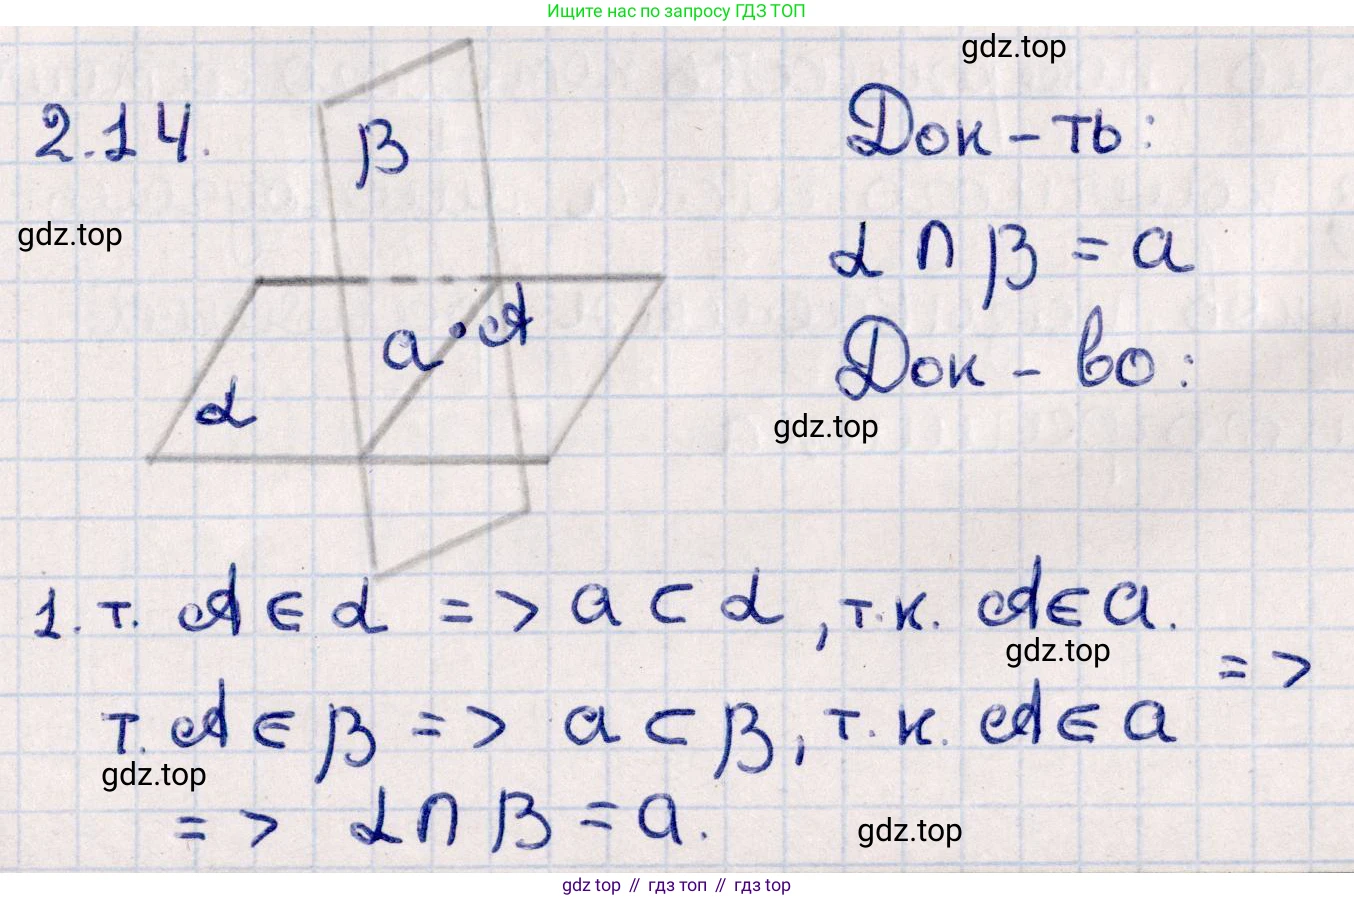 Ищите нас по запросу ГДЗ ТОП
gdz.top
2.14.
β
Док-ть:
gdz.top
α ∩ β = a
a
A
Док-во:
α
gdz.top
1. т. A ∈ α => a ⊂ α, т.к. A ∈ a.
gdz.top
=>
т. A ∈ β => a ⊂ β, т.к. A ∈ a
gdz.top
=> α ∩ β = a.
gdz.top
gdz top // гдз топ // гдз top